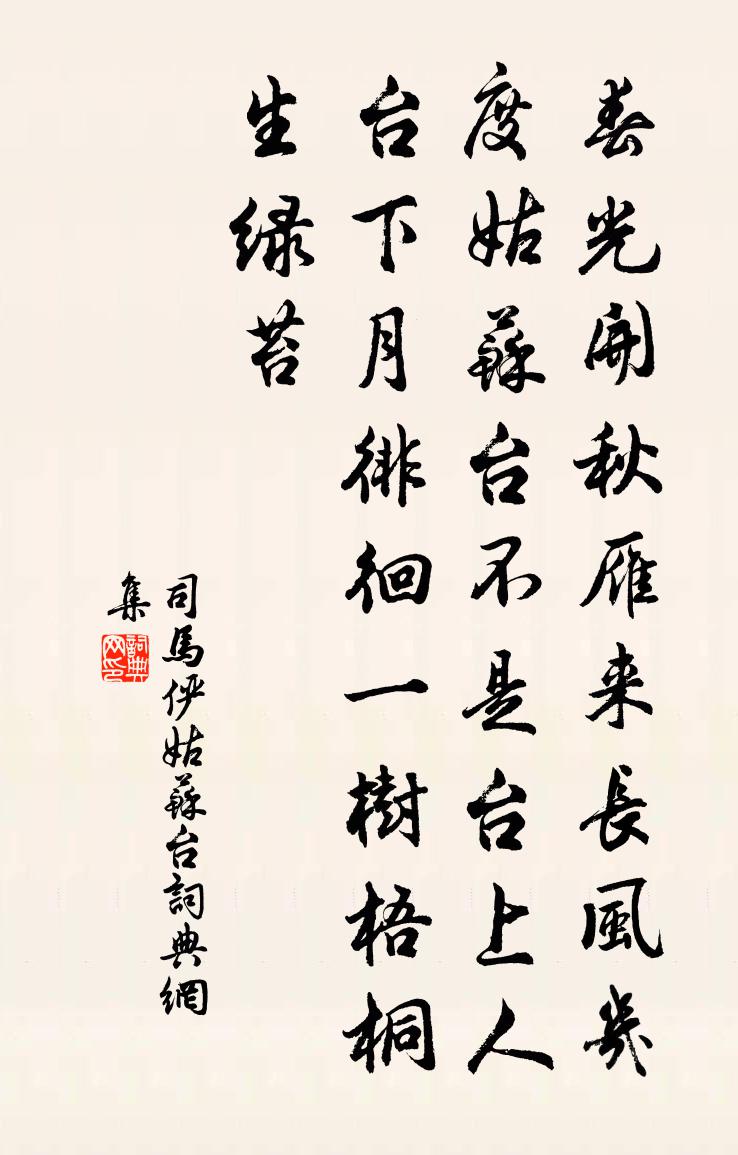 春光開秋雁来長風幾
度姑蘇台不是台上人
台下月徘徊一樹梧桐
生绿苔
司馬伊姑蘇台詞典網
集
詞典
网印